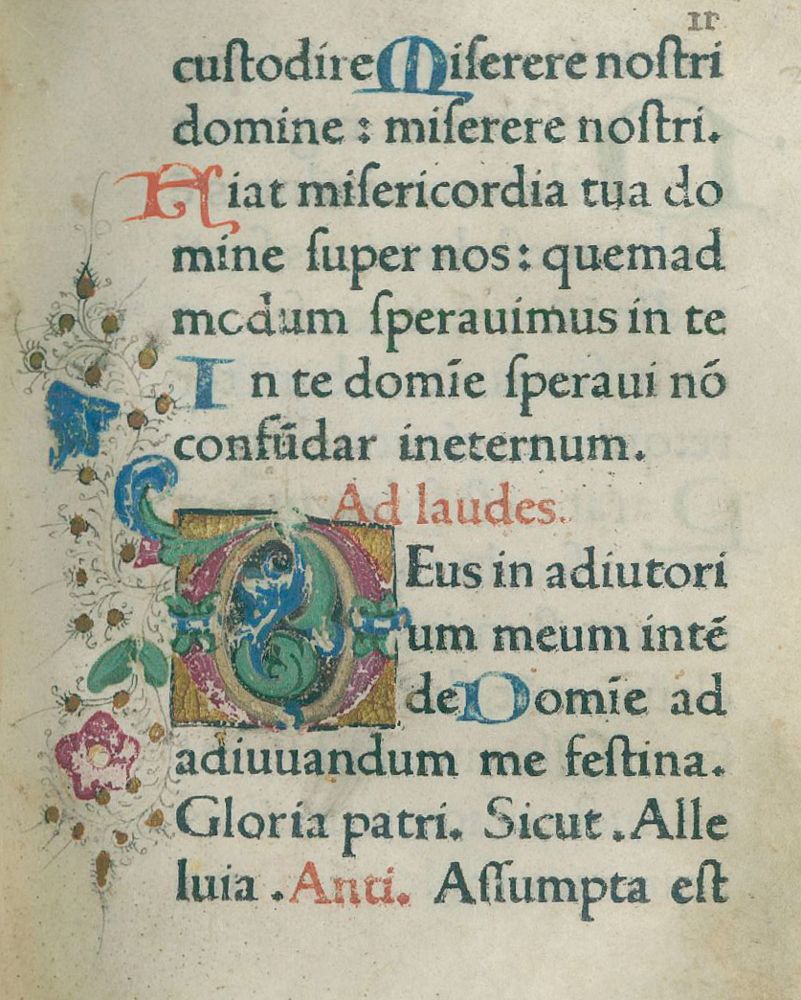 11
cuſtodire Miſerere noſtri
domine : miſerere noſtri.
Fiat miſericordia tua do
mine ſuper nos : quemad
modum ſperauimus in te
In te domīe ſperaui nō
confūdar ineternum.
Ad laudes.
DEus in adiutori
um meum intē
de Domīe ad
adiuuandum me feſtina.
Gloria patri. Sicut . Alle
luia . Anti. Aſſumpta eſt